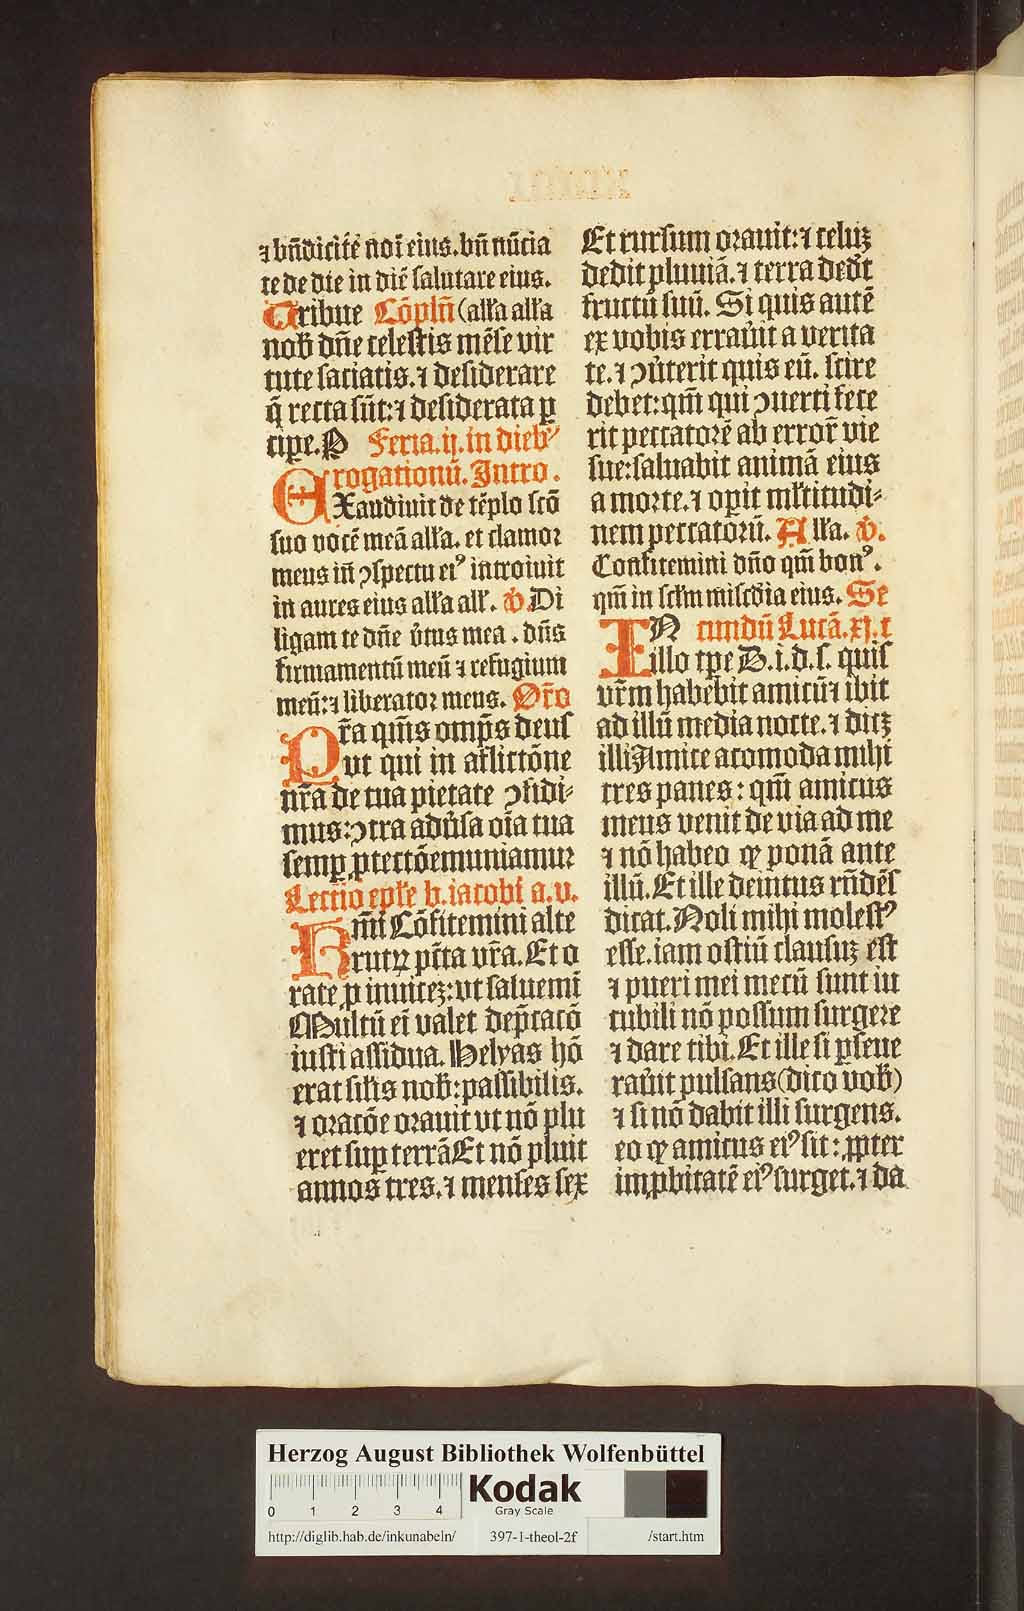 ⁊ bn̄dicit́e noī eius. bn̄ nūcia
te de die in diē salutare eius.
Tribue Cōpln̄ (all'a all'a
nob̄ dn̄e celestis mēse vir
tute saciatis. ⁊ desiderare
q̄ recta sūt: ⁊ desiderata ꝑ
cipe. P Feria .ij. in dieb⁹
rogationū. Intro.
EXaudiuit de tēplo scō
suo vocē meā all'a. et clamor
meus in̄ ꝯspectu ei⁹ introiuit
in aures eius all'a all'. v̄. Di
ligam te dn̄e v̓tus mea . dn̄s
firmamentū meū ⁊ refugium
meū: ⁊ liberator meus. Or̄o
Pr̄a qm̄s omp̄s deus
vt qui in afflictōne
nr̄a de tua pietate ꝯfidi⸗
mus: ꝯtra adv̓sa oīa tua
semꝑ ꝓtectōe muniamur
Lectio ep̄le b. iacobi a. v.
Km̄i Cōfitemini alte
rutrꝝ pctā vr̄a. Et o
rate ꝓ inuicēꝫ: vt saluemī
Multū eī valet dep̄cacō
iusti assidua. Helyas hō
erat sil'is nob̄: passibilis.
⁊ oracōe orauit vt nō plu
eret suꝑ terrā Et nō pluit
annos tres. ⁊ menses sex
Et rursum orauit: ⁊ celuꝫ
dedit pluuiā. ⁊ terra ded̓t
fructū suū. Si quis autē
ex vobis errau̓it a verita
te. ⁊ ꝯu̓terit quis eū. scire
debet: qm̄ qui ꝯuerti fece
rit peccatorē ab error̄ vie
sue: saluabit animā eius
a morte. ⁊ oꝑit ml'titudi⸗
nem peccatorū. All'a. v̄.
Confitemini dn̄o qm̄ bon⁹.
qm̄ in scl'm misc̄dia eius. Se
IN cundū Lucā. xj. c
illo tp̄e D. i. d. s. quis
vr̄m habebit amicū ⁊ ibit
ad illū media nocte. ⁊ dicꝫ
illi Amice acomoda mihi
tres panes: qm̄ amicus
meus venit de via ad me
⁊ nō habeo ꝙ ponā ante
illū. Et ille deintus rn̄dēs
dicat. Noli mihi molest⁹
esse. iam ostiū clausuꝫ est
⁊ pueri mei mecū sunt in
cubili nō possum surgere
⁊ dare tibi. Et ille si ꝑseue
rau̓it pulsans (dico vob̄)
⁊ si nō dabit illi surgens.
eo ꝙ amicus ei⁹ sit: ꝓpter
imꝓbitatē ei⁹ surget. ⁊ da
Herzog August Bibliothek Wolfenbüttel
0 1 2 3 4
Kodak
Gray Scale
http://diglib.hab.de/inkunabeln/ 397-1-theol-2f /start.htm